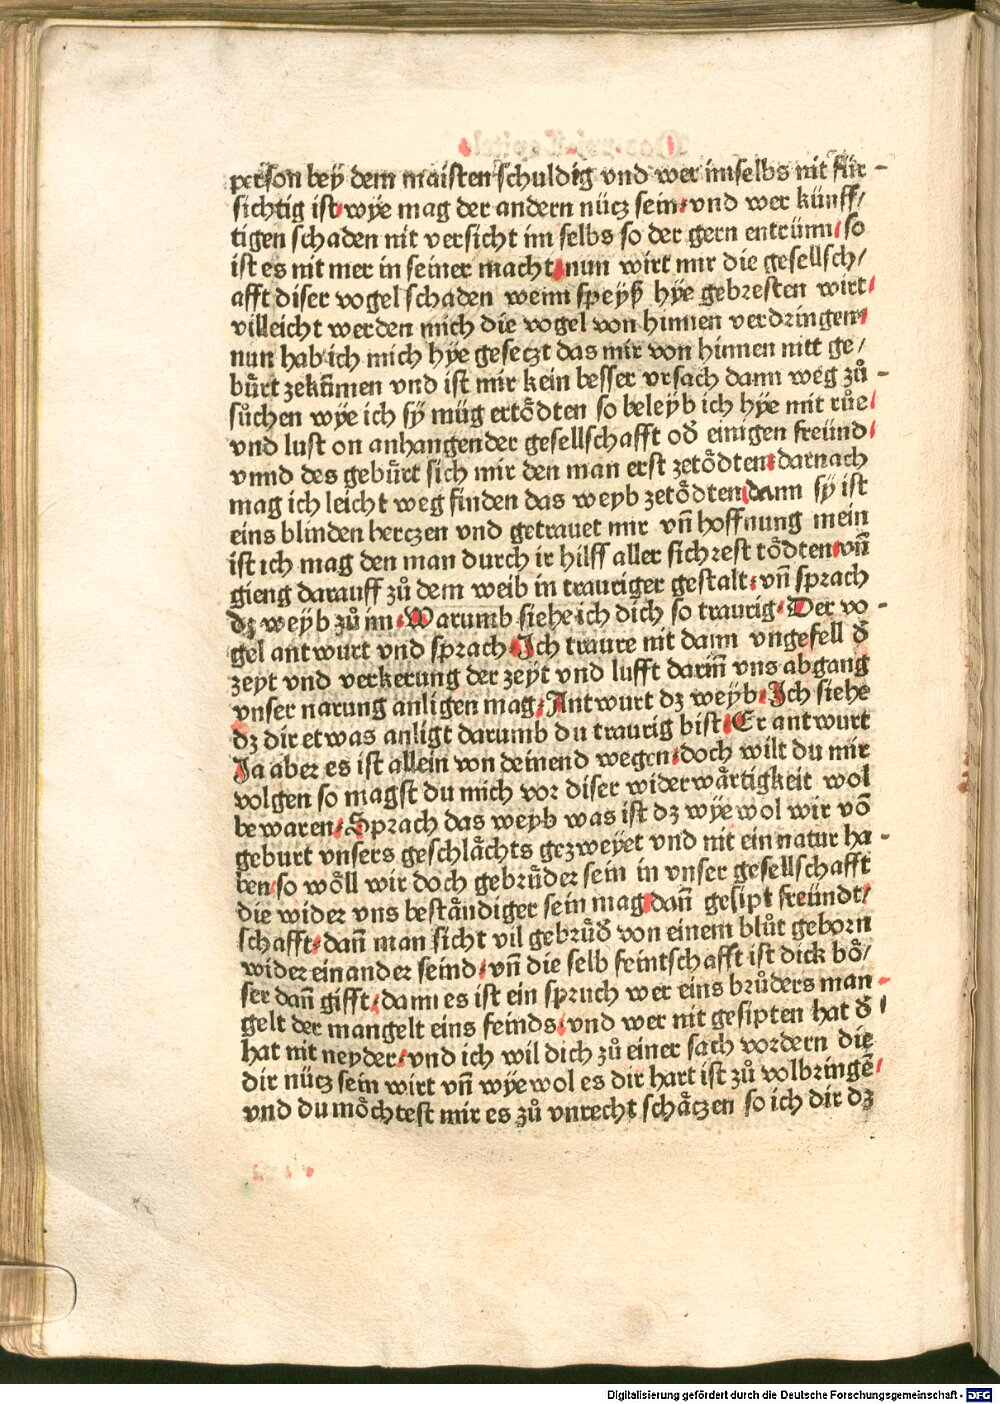 person bey dem maisten schuldig vnd wer imselbs nit für-
sichtig ist wye mag der andern nücz sein vnd wer künff/
tigen schaden nit versicht im selbs so der gern entrünn so
ist es nit mer in seiner macht nun wirt mir die gesellsch/
afft diser vogel schaden wenn speyß hye gebresten wirt
villeicht werden mich die vogel von hinnen verdringen
nun hab ich mich hye gesetzt das mir von hinnen nitt ge/
bürt zekūmen vnd ist mir kein besser vrsach dann weg zů-
sůchen wye ich sÿ müg ertödten so beleyb ich hye mit růe
vnd lust on anhangender gesellschafft oð einigen freünd
vnnd des gebürt sich mir den man erst zetödten darnach
mag ich leicht weg finden das weyb zetödten dann sÿ ist
eins blinden herczen vnd getrauet mir vn̄ hoffnung mein
ist ich mag den man durch ir hilff aller sichrest tödten vn̄
gieng darauff zů dem weib in trauriger gestalt vn̄ sprach
dz weyb zů im Warumb siehe ich dich so traurig Der vo-
gel antwurt vnd sprach Ich traure nit dann vngefell ð
zeyt vnd verkerung der zeyt vnd lufft darin̄ vns abgang
vnser narung anligen mag Antwurt dz weyb Ich siehe
dz dir etwas anligt darumb du traurig bist Er antwurt
Ja aber es ist allein von deinend wegen doch wilt du mir
volgen so magst du mich vor diser widerwärtigkeit wol
bewaren Sprach das weyb was ist dz wye wol wir vō
geburt vnsers geschlächts gezweyet vnd nit ein natur ha-
ben so wöll wir doch gebrüder sein in vnser gesellschafft
die wider vns beständiger sein mag dan̄ gesipt freündt/
schafft dan̄ man sicht vil gebrüð von einem blůt geborn
wider einander seind vn̄ die selb feintschafft ist dick bö/
ser dan̄ gifft dann es ist ein spruch wer eins brůders man-
gelt der mangelt eins feinds vnd wer nit gesipten hat ð
hat nit neyder vnd ich wil dich zů einer sach vordern die
dir nücz sein wirt vn̄ wye wol es dir hart ist zů volbringē
vnd du möchtest mir es zů vnrecht schätzen so ich dir dz
Digitalisierung gefördert durch die Deutsche Forschungsgemeinschaft - DFG